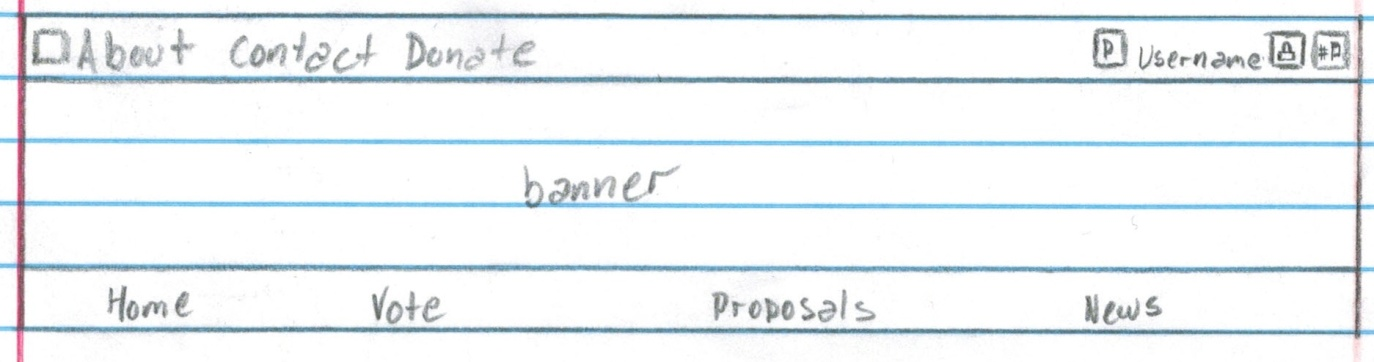 About Contact Donate P Username #P
banner
Home Vote Proposals News